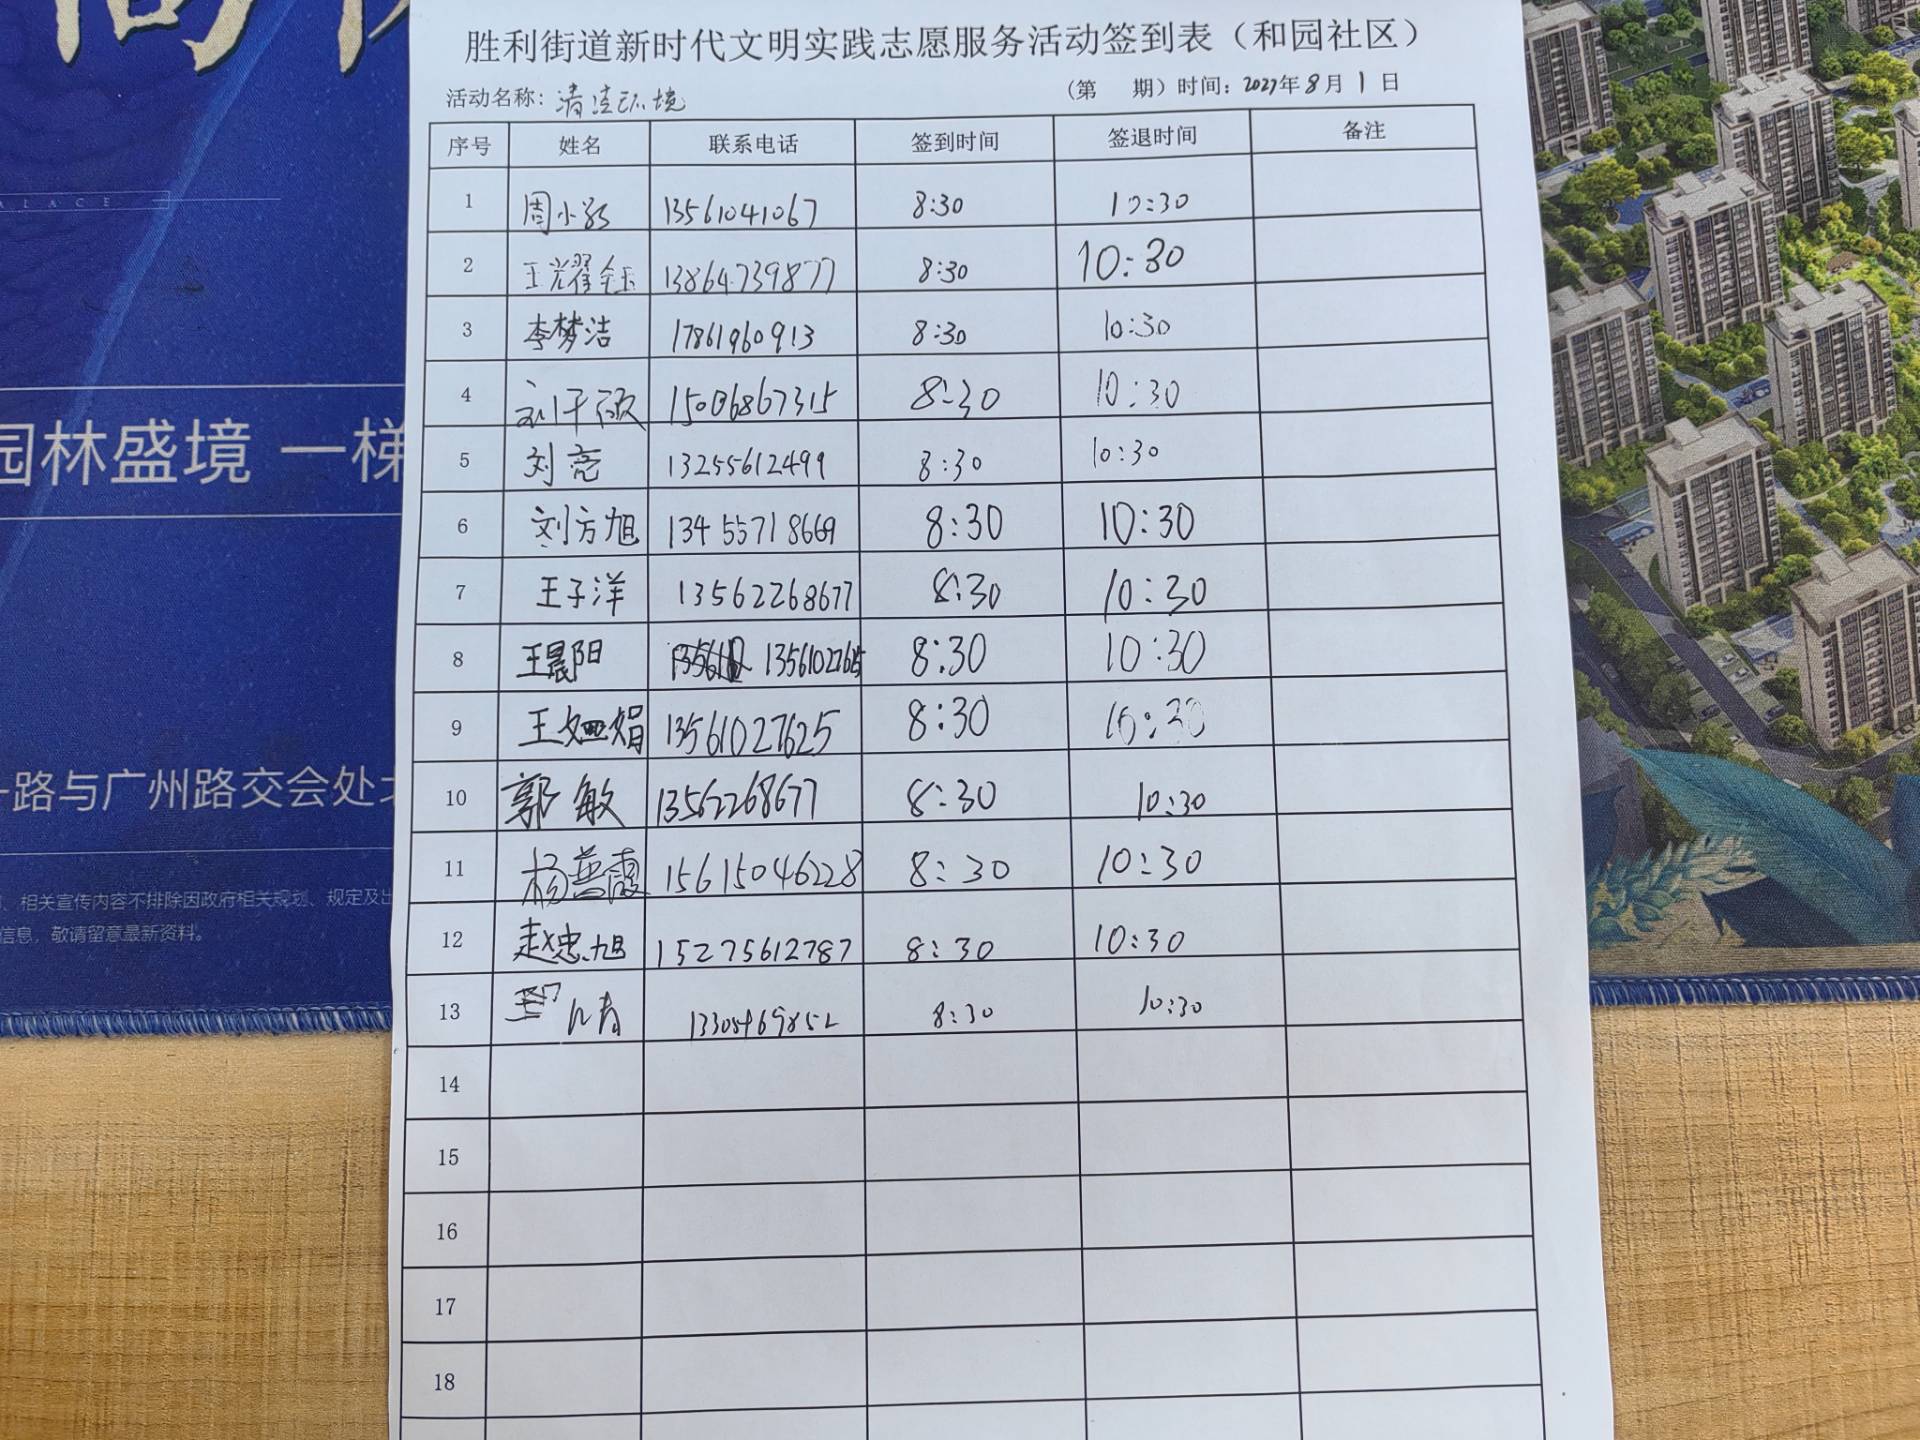 ALACE
园林盛境 一梯
路与广州路交会处北
、相关宣传内容不排除因政府相关规划、规定及出
信息，敬请留意最新资料。
胜利街道新时代文明实践志愿服务活动签到表（和园社区）
活动名称：清洁环境 （第 期）时间：2027年8月1日
序号 姓名 联系电话 签到时间 签退时间 备注
1 周小 13561041067 8:30 10:30
2 王耀钰 13864739877 8:30 10:30
3 李梦洁 17861960913 8:30 10:30
4 刘千硕 15006867315 8:30 10:30
5 刘亮 13255612499 8:30 10:30
6 刘方旭 13455718669 8:30 10:30
7 王子洋 13562268677 8:30 10:30
8 王晨阳 13561027625 8:30 10:30
9 王娟 13561027625 8:30 10:30
10 郭敏 13562268677 8:30 10:30
11 杨燕霞 15615046228 8:30 10:30
12 赵忠旭 15275612787 8:30 10:30
13 8:30 10:30
14
15
16
17
18